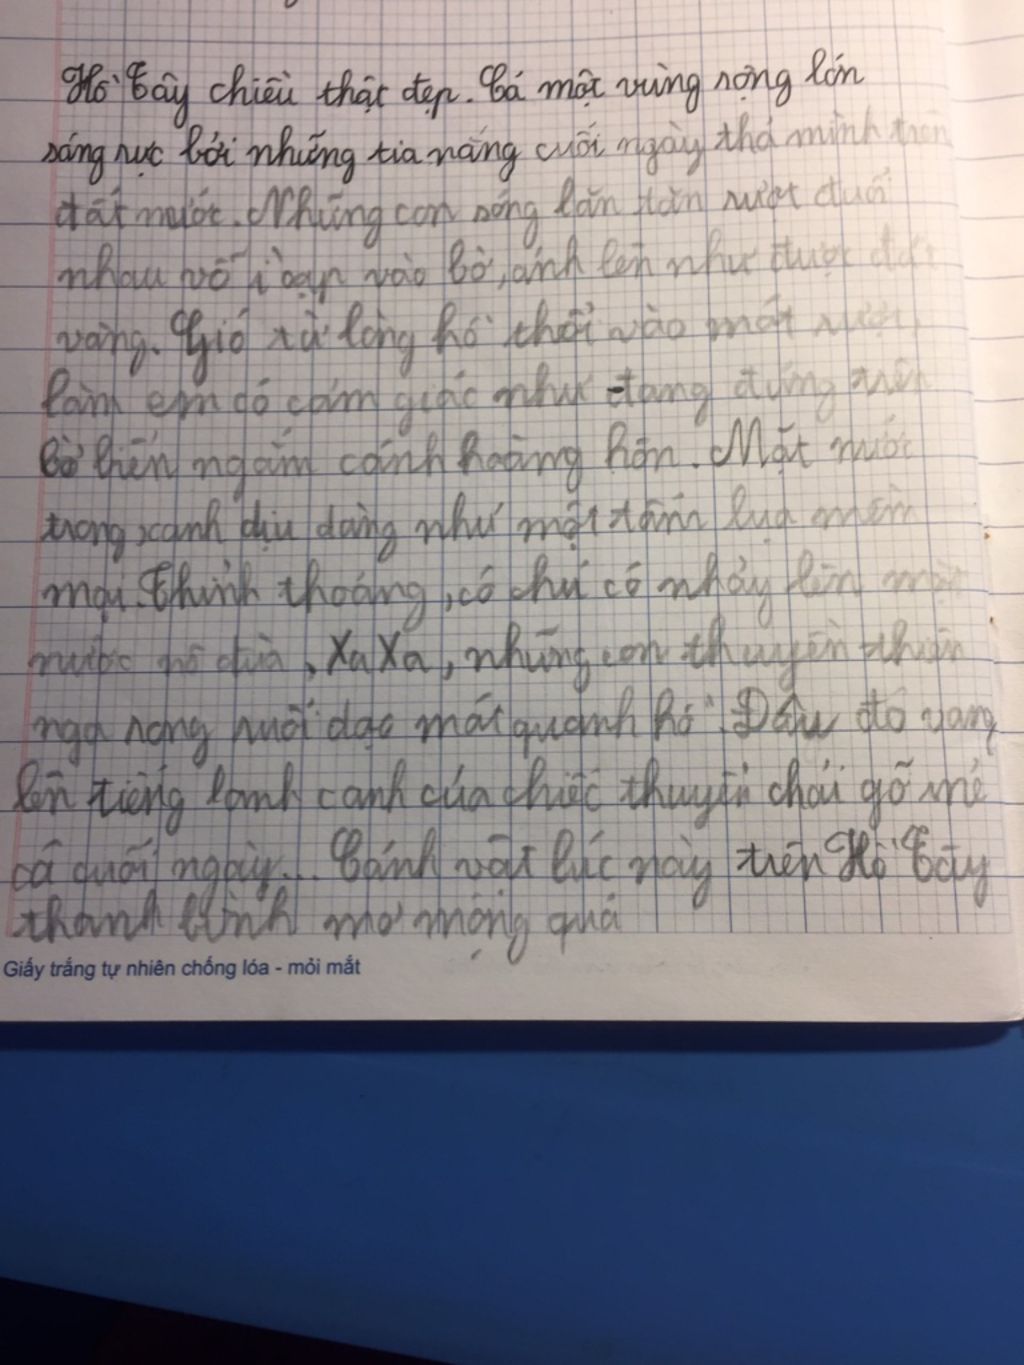 Hồ Tây chiều thật đẹp. Cả một vùng rộng lớn
sáng rực bởi những tia nắng cuối ngày thả mình trên
đất nước. Những con sóng lăn tăn rượt đuổi
nhau vỗ ì oạp vào bờ, ánh lên như được dát
vàng. Gió từ lòng hồ thổi vào mát rượi,
làm em có cảm giác như đang đứng trên
bờ biển ngắm cảnh hoàng hôn. Mặt nước
trong xanh dịu dàng như một tấm lụa mềm
mại. Thỉnh thoảng, có chú cá nhảy lên mặt
nước nô đùa, Xa Xa, những con thuyền thiên
nga rong ruổi dạo mát quanh hồ. Đâu đó vang
lên tiếng lanh canh của chiếc thuyền chài gỡ mẻ
cá cuối ngày... Cảnh vật lúc này trên Hồ Tây
thanh bình mơ mộng quá
Giấy trắng tự nhiên chống lóa - mỏi mắt